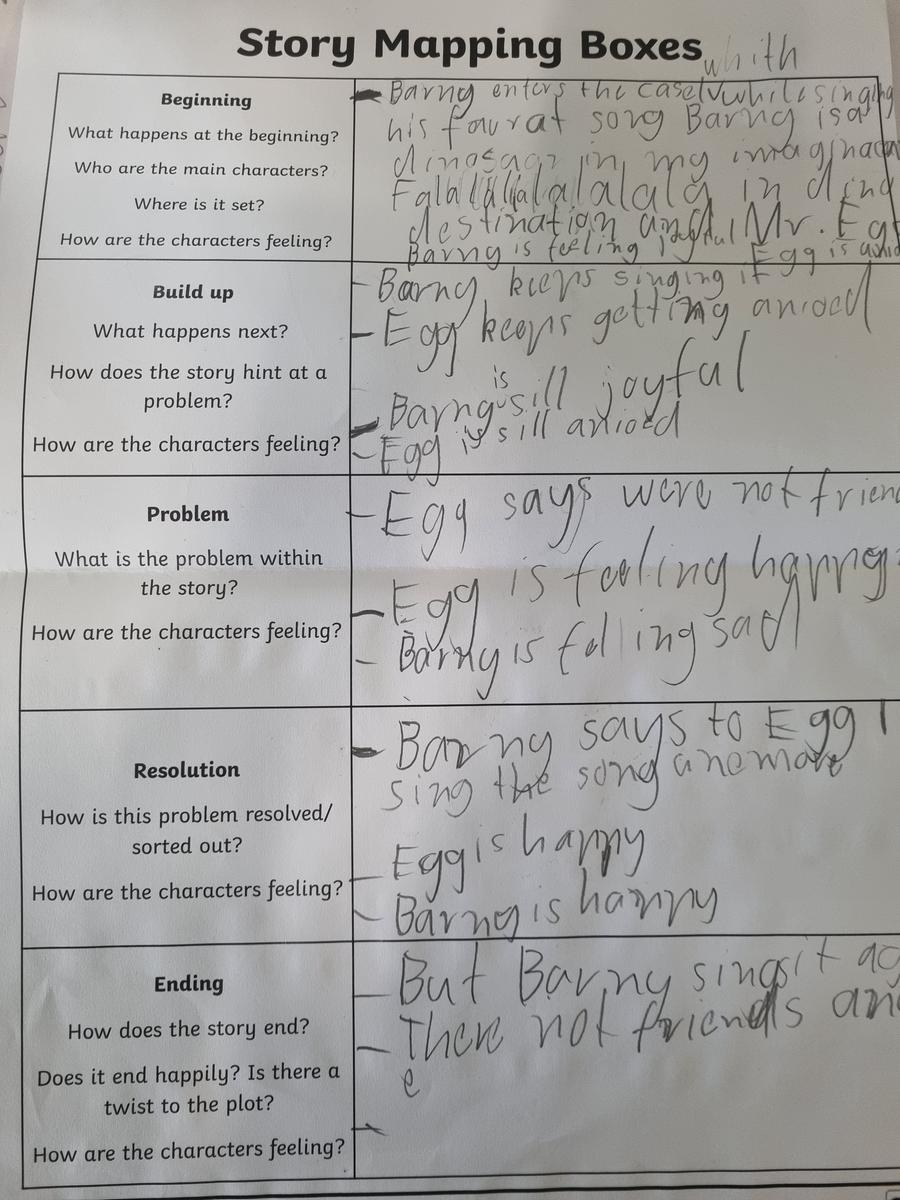 Story Mapping Boxes
whith
Beginning
What happens at the beginning?
Who are the main characters?
Where is it set?
How are the characters feeling?
- Barny enters the while singing
his faurat song Barny is a
dinosaar in my
Falalalalalalala in
destination and Mr. Eg
Barny is feeling joyful Egg is
Build up
What happens next?
How does the story hint at a
problem?
How are the characters feeling?
- Barny keeps singing it
- Egg keeps getting anioed
is
- Barny sill joyful
- Egg is sill anioed
Problem
What is the problem within
the story?
How are the characters feeling?
- Egg says were not frien
- Egg is feeling happy
- Barny is felling sad
Resolution
How is this problem resolved/
sorted out?
How are the characters feeling?
- Barny says to Egg I
sing the song anemore
- Egg is happy
- Barny is happy
Ending
How does the story end?
Does it end happily? Is there a
twist to the plot?
How are the characters feeling?
- But Barny sings it ag
- There not friends an
e
-